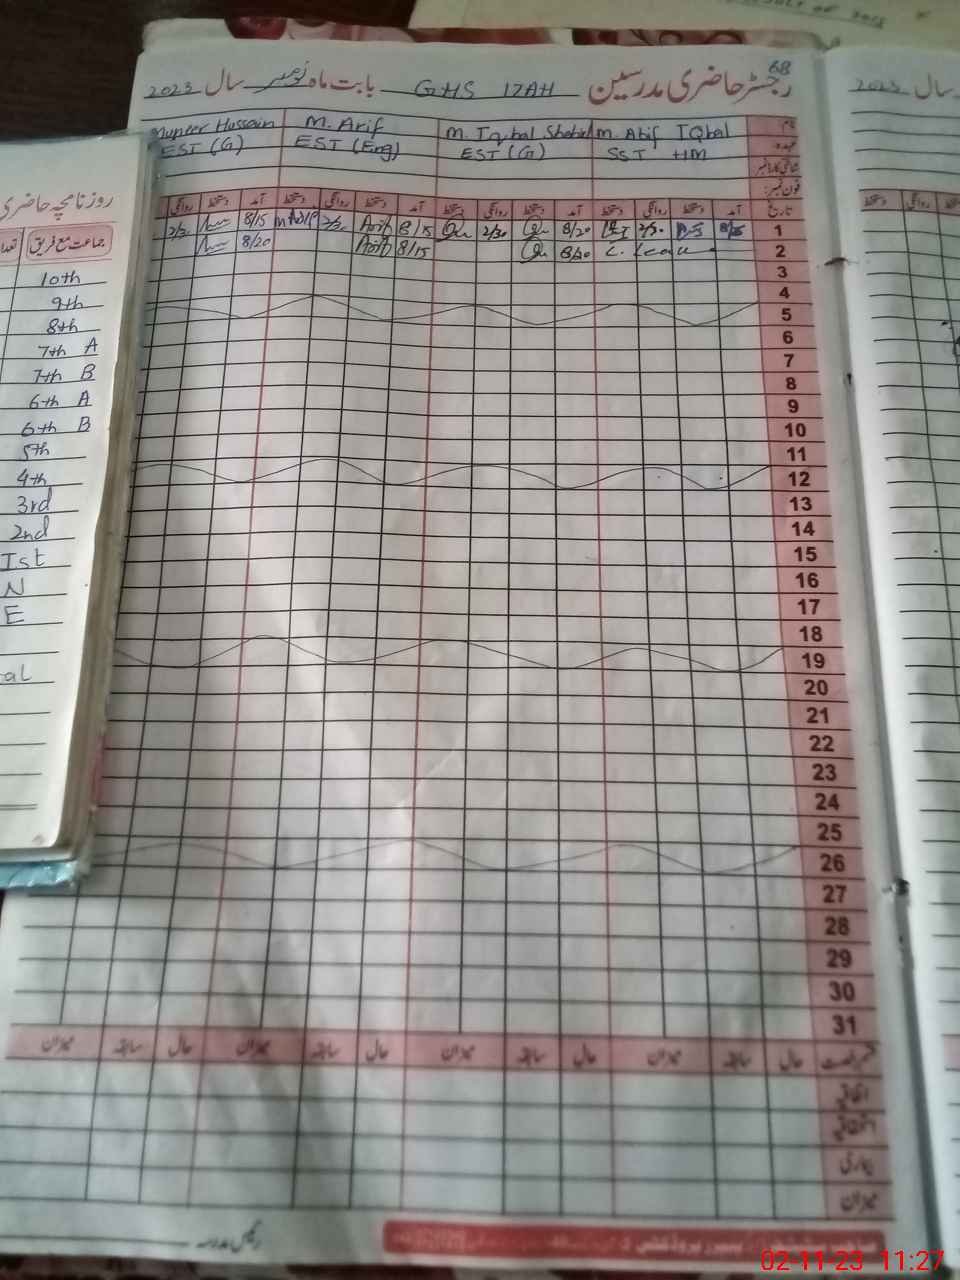 68
رجسٹر حاضری مدرسین GHS 17AH بابت ماہ نومبر سال 2023
نام M. Atif IQbal M. Iqbal Shahid M. Arif Muneer Hussain
عہدہ SST HM EST (G) EST (Eng) EST (G)
شناختی کارڈ نمبر
فون نمبر:
تاریخ آمد دستخط روانگی دستخط آمد دستخط روانگی دستخط آمد دستخط روانگی دستخط آمد دستخط روانگی
1 2/30 8/20 2/30 8/15 Arif 2/30 M Arif 8/15 2/30
2 C. Leave 8/20 8/15 Arif 8/20
3
4
5
6
7
8
9
10
11
12
13
14
15
16
17
18
19
20
21
22
23
24
25
26
27
28
29
30
31
حال سابقہ میزان حال سابقہ میزان حال سابقہ میزان حال سابقہ میزان
اتفاقیہ
استحقاقیہ
بیماری
میزان
رئیس مدرسہ
روزنامچہ حاضری
جماعت مع فریق تعداد
10th
9th
8th
7th A
7th B
6th A
6th B
5th
4th
3rd
2nd
Ist
N
E
2023 سال
دستخط روانگی
02-11-23 11:27